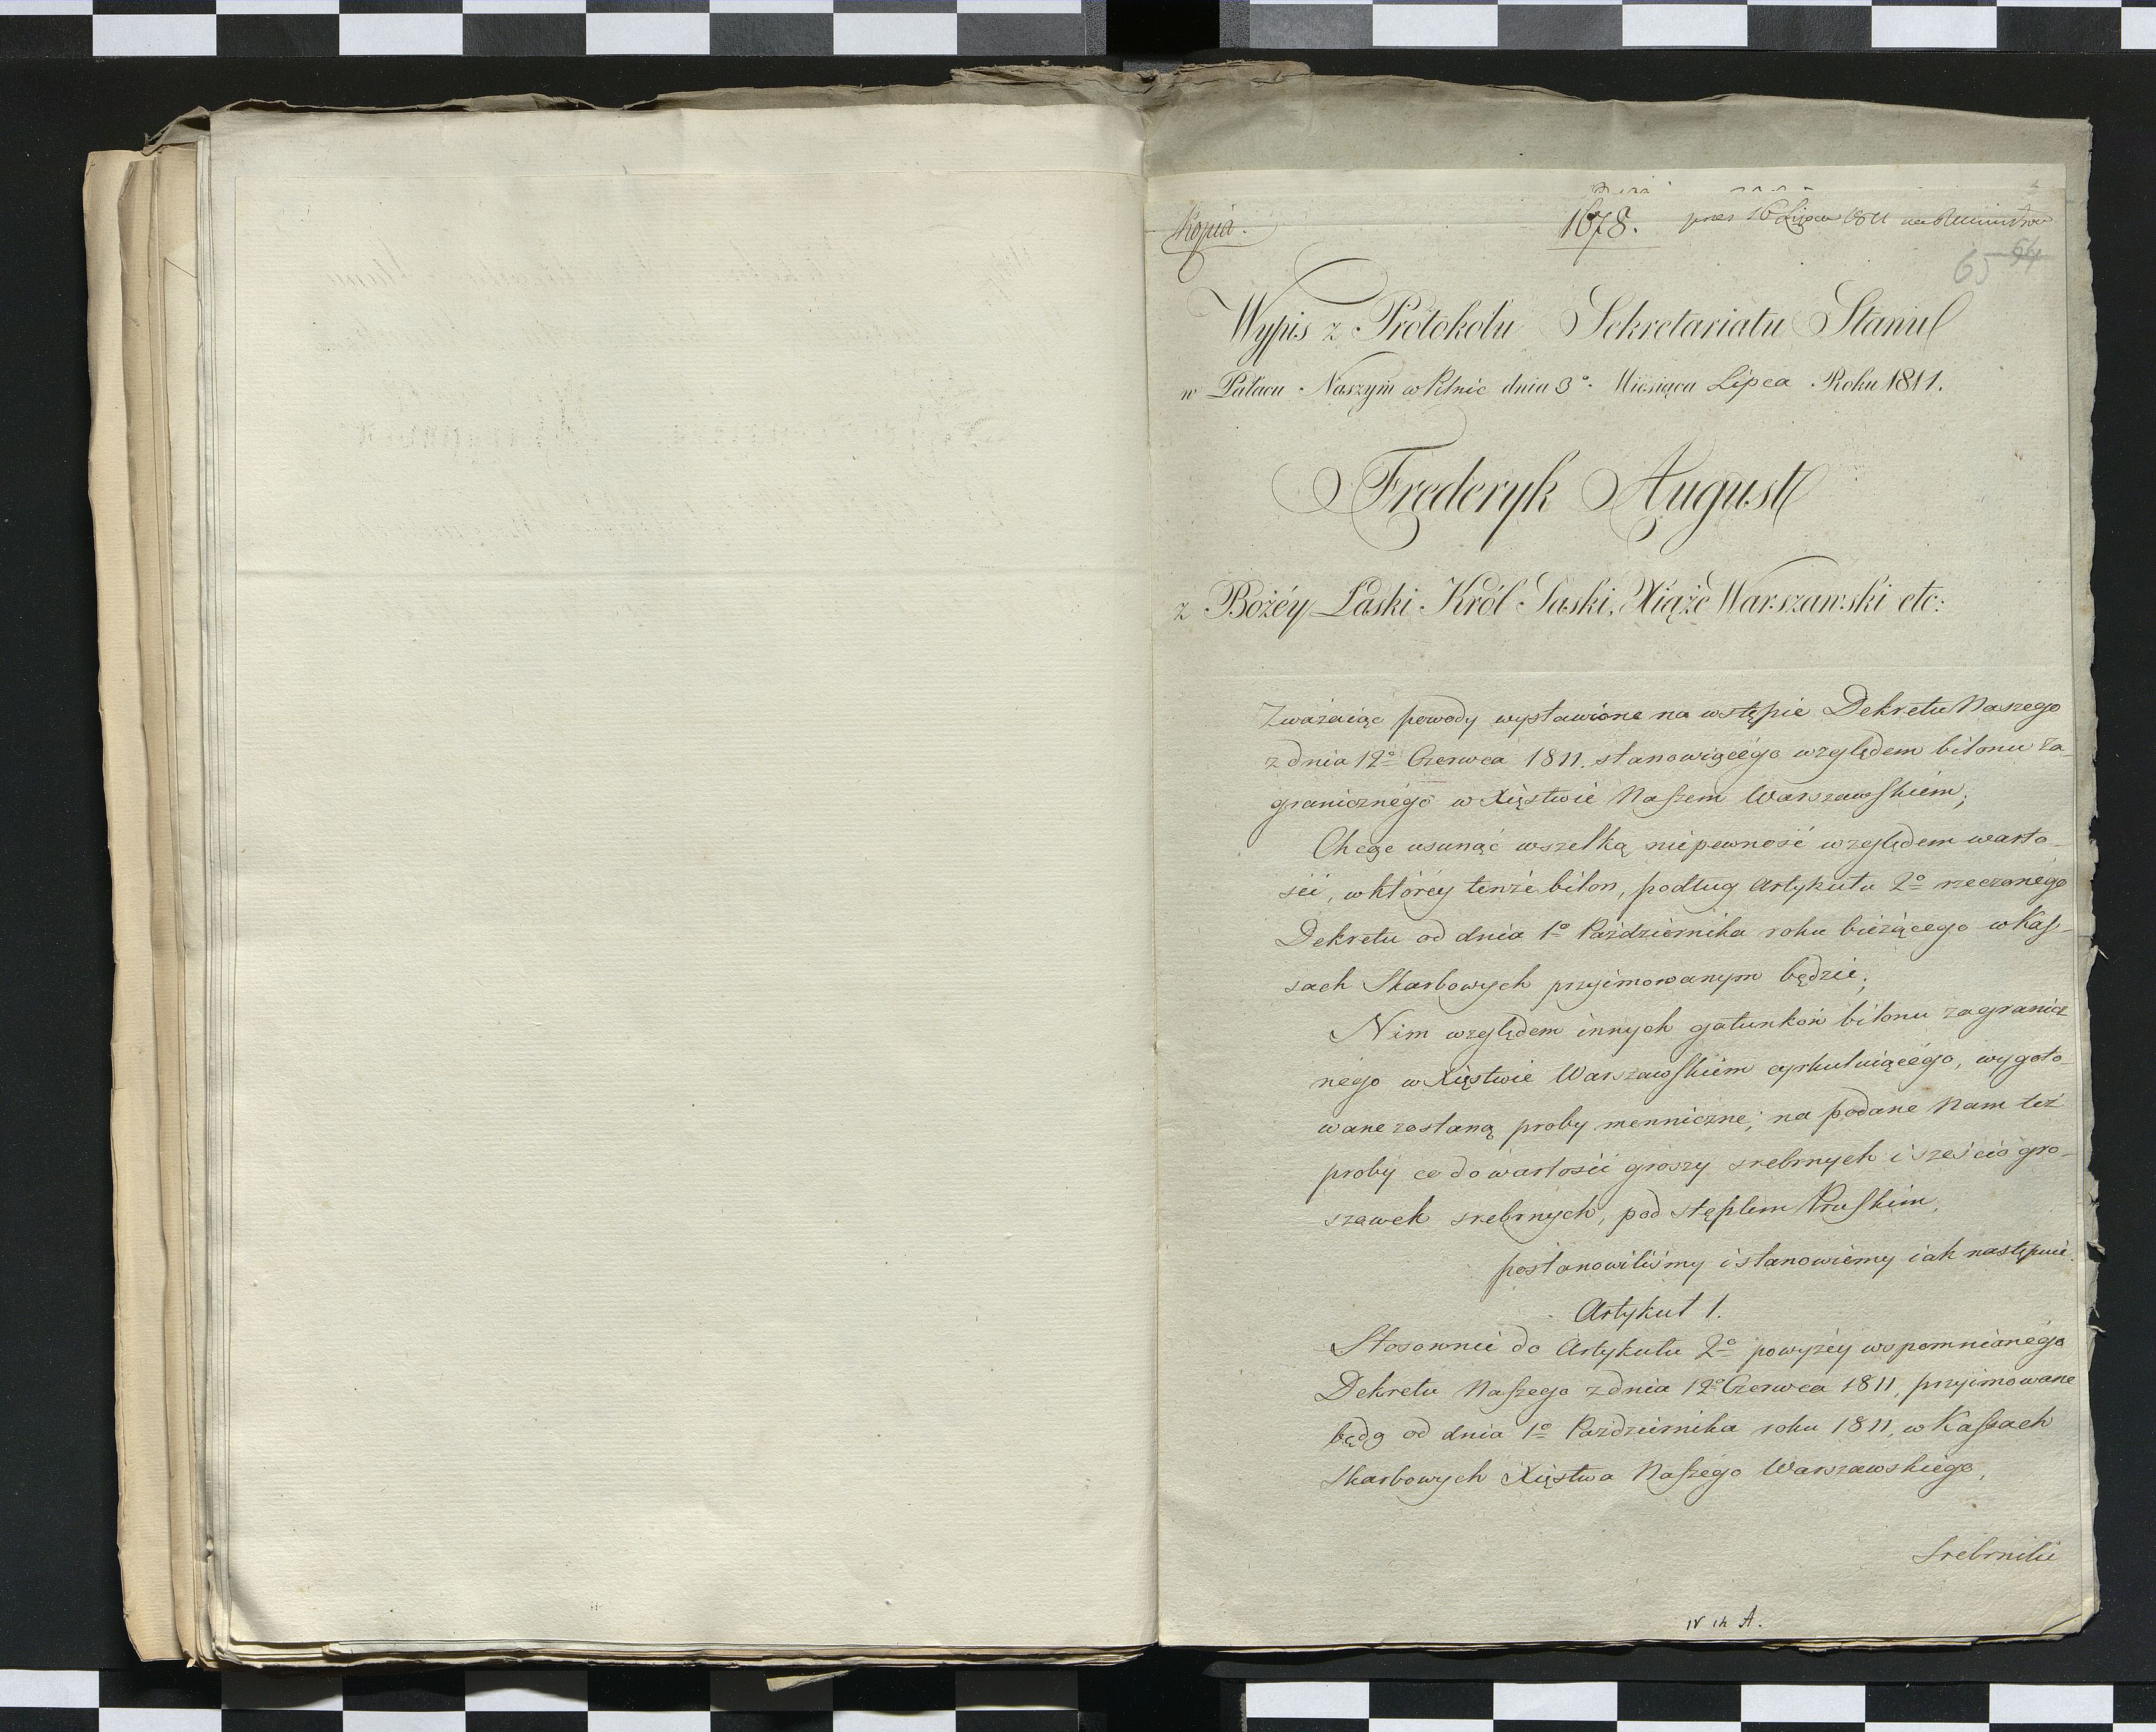 Kopia.
1678. prez. 16 Lipca 1811
65 64
Wypis z Protokołu Sekretariatu Stanu
w Pałacu Naszym w Pilnic dnia 3º. Miesiąca Lipca Roku 1811.
Frederyk August
z Bożéy Łaski Król Saski, Xiąże Warszawski etc:
Zważaiąc powody wystawione na wstępie Dekretu Naszego
z dnia 12º Czerwca 1811. stanowiącégo względem bilonu za-
granicznégo w Xięstwie Naszem Warszawskiem;
Chcąc usunąć wszelką niepewność względem warto-
ści, w któréy tenże bilon, podług Artykułu 2º rzeczonégo
Dekretu od dnia 1º Października roku bieżącego w Kas-
sach Skarbowych przyimowanym będzie;
Nim względem innych gatunków bilonu zagranicz
négo w Xięstwie Warszawskiem cyrkuluiącégo, wygoto-
wane zostaną proby menniczne; na podane Nam też
proby co do wartości groszy srebrnych i sześciogro-
szówek srebrnych, pod stęplem Pruskim,
postanowiliśmy i stanowiemy iak następuie.
Artykuł 1.
Stosownie do Artykułu 2º powyżéy wspomnianégo
Dekretu Naszego z dnia 12º Czerwca 1811, przyimowane
będą od dnia 1º Października roku 1811, w Kassach
Skarbowych Xięstwa Naszégo Warszawskiégo,
Srebrniki